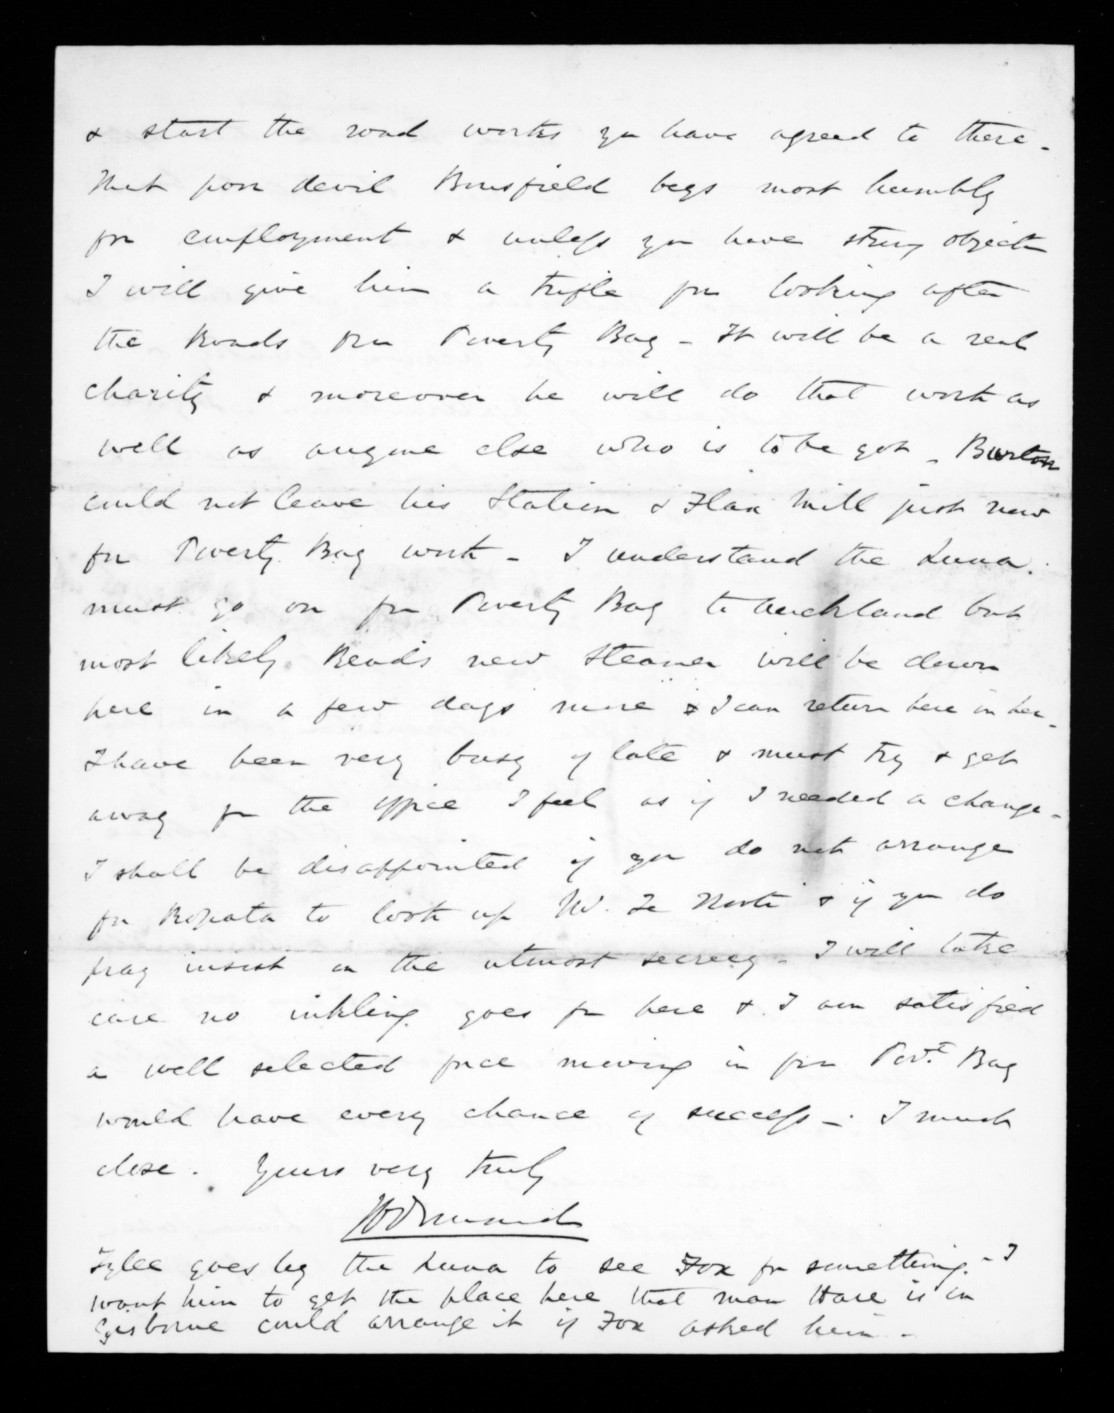 & start the road works you have agreed to there -
That poor devil Bousfield begs most humbly
for employment & unless you have strong objectn
I will give him a trifle for looking after
the Roads from Poverty Bay - It will be a real
charity & moreover he will do that work as
well as anyone else who is to be got - Burton
could not leave his Station & Flax Mill just now
for Poverty Bay work - I understand the Luna
must go on from Poverty Bay to Auckland but
most likely Read's new Steamer will be down
here in a few days more & I can return here in her -
I have been very busy of late & must try & get
away fr the office I feel as if I needed a change -
I shall be disappointed if you do not arrange
for Ropata to look up Te Kooti & if you do
pray insist on the utmost secrecy - I will take
care no inkling goes fr here & I am satisfied
a well selected force moving in from Povt Bay
would have every chance of success - I must
close . Yours very truly
JD Ormond
Tylee goes by the Luna to see Fox for something - I
want him to get the place here that man Hare is in
Gisborne could arrange it if Fox asked him -